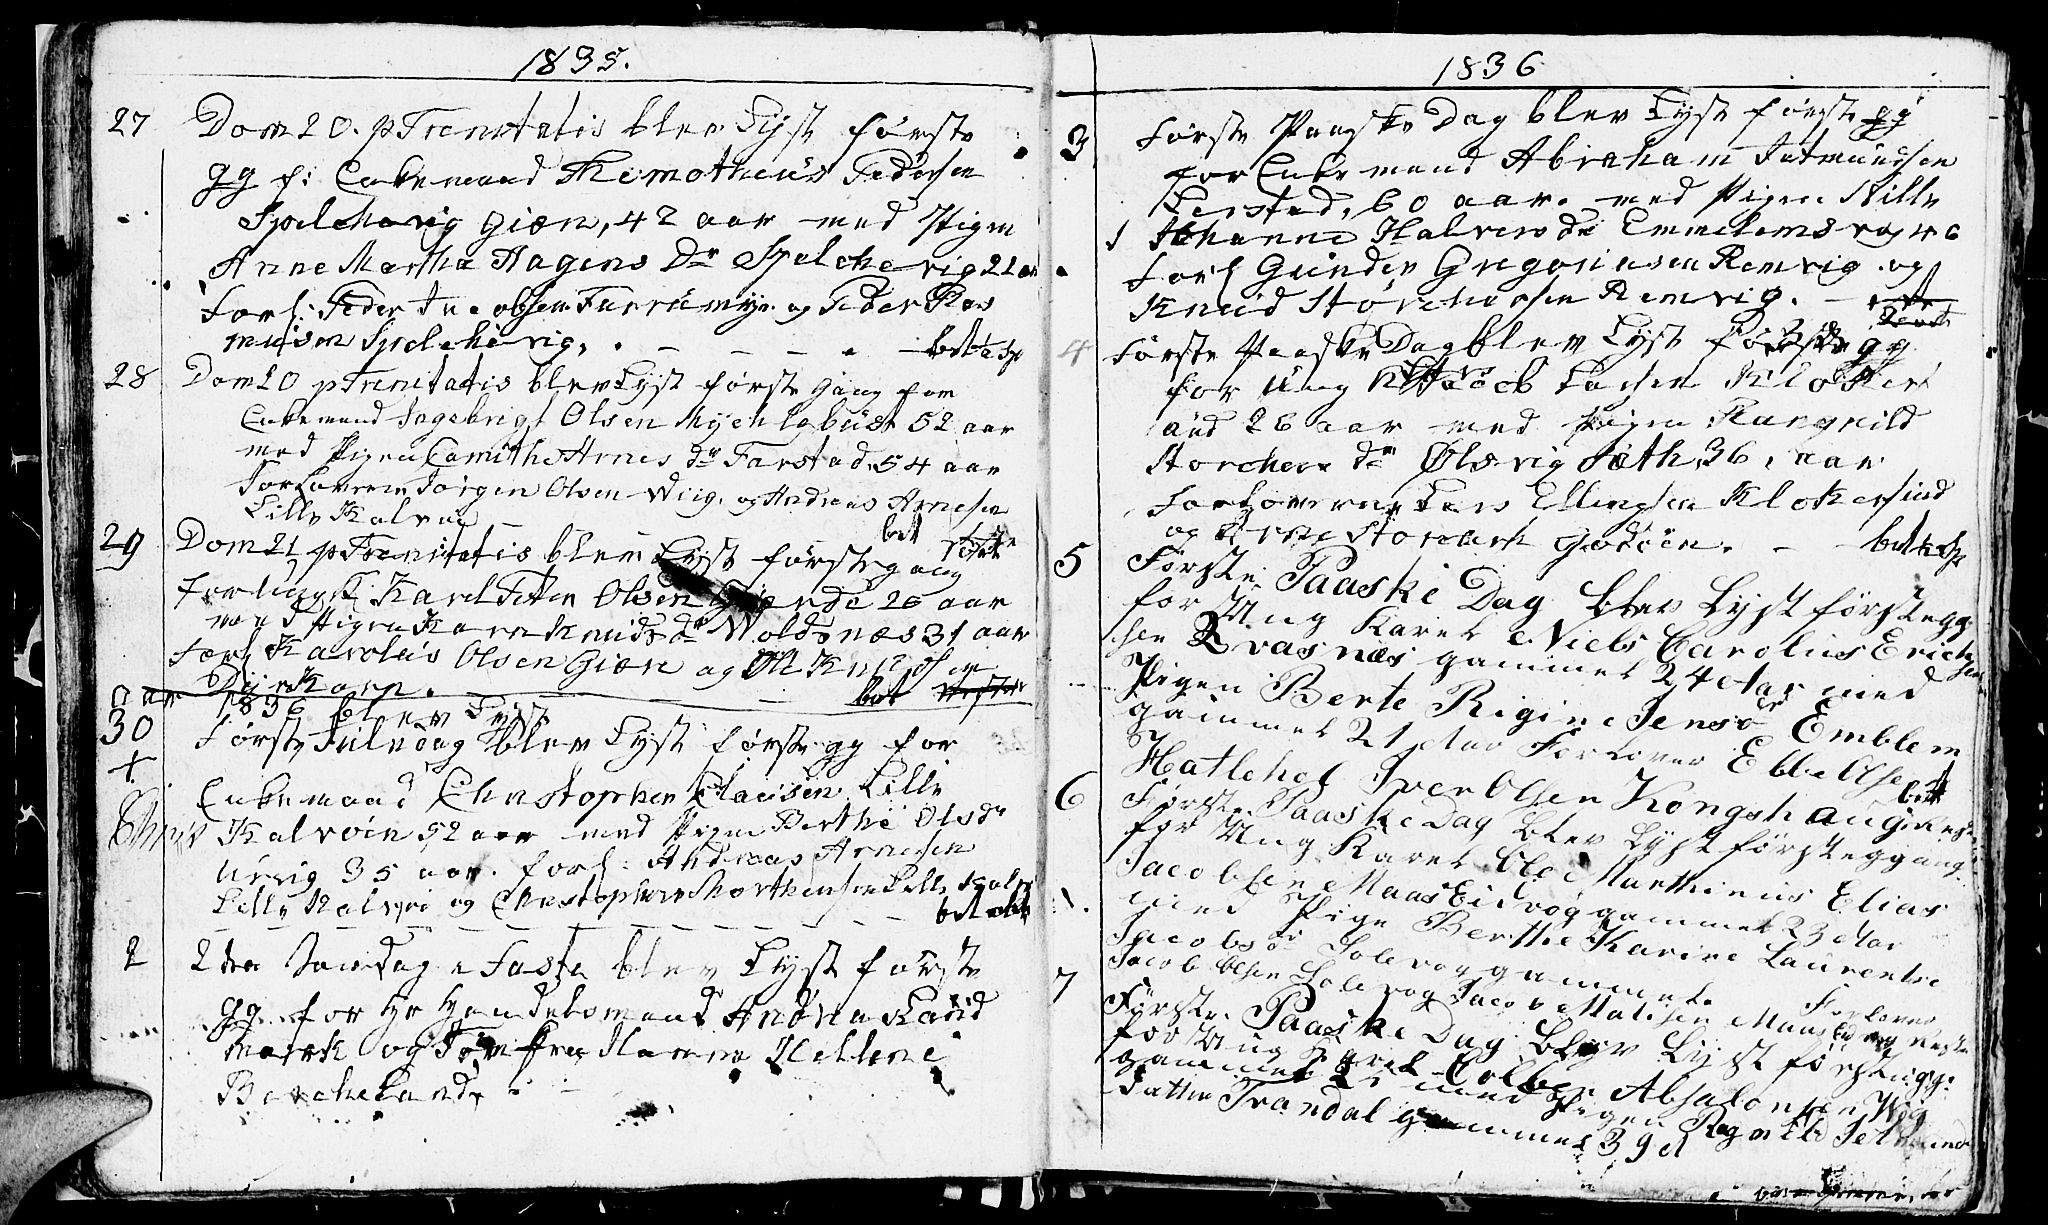 1835.
27 Dom 20. p Trenitatis blev Lyst første
gg f: Enkemand Themotheus Pedersen
Spelchavig Giæn, 42 aar med Pigen
Anne Martha Hagens Dr Spelchevig 21 aar
Forl: Peder Jacobsen og Peder Ras
musen Spelchevig, . — — — . — bet
28 Dom 20 p Trenitatis blev Lyst første gang for
Enkemand Ingebrigt Olsen Mychlebust 52 aar
med Pigen Arnes dr Farstad 54 aar
Forloverne Jørgen Olsen Wiig og Andreas Arnesen
Lille Kalvøe
29 Dom 21 p Trenitatis blev Lyst første gang bet
for ungk: Karel Peter Olsen 26 aar
med Pigen Karen Knuds dr Woldsnæs 31 aar
Forl Karolus Olsen Giøre og Ole Knudsen
bet
aar 1836 blev Lyst
30 Første Juledag blev Lyst første gg for
+ Enkemand Christopher Clausen Lille
Kalvøin 52 aar med Pigen Berthe Olsdr
Urvig 35 aar. forl: Andreas Arnesen
Lille Kalvøe og Christopher Morthensen Lille Kalv
bet
2 2den Søndag i Faste blev Lyst første
gg for Hr Handelsmand Andreas Land
mark og Jomfrue Hanna Hellene
Bercheland,
1836
3 Første Paaske Dag blev Lyst første gg
for Enkemand Abraham Intmundsen
Perstad, 60 aar. med Pigen Sille
Johanne Halvers dr Emmelemsvog 46
Forl Gunder Gregoriusen Remvig og
Knud Størchersen Remvig. —
4 Første Paaske Dag blev Lyst første gg
for Ung K Jacob Larsen Kloster
sund 26 aar med Pigen Rangnild
Storchers dr Ølsvig Sæth, 36, aar
Forloverne Lars Ellingsen Klokersund
og Arne Storcark Godøen. — — bet
5 Første Paaske Dag blev Lyst første gg
for Ung Karel Niels Carolius Erich
sen Qvasnæs gammel 24 Aar med
Pigen Berte Rigine Jens dr Emblem
gammel 21 Aar Forlover Ebbe Olsen
Hatlehol Iver Olsen Kongshaug bet
6 Første Paaske Dag blev Lyst første gg gang
for Ung Karel Ole Marthinus Elias
Jacobsen Maas Eidvog gammel 23 Aar
med Pige Berthe Karine Laurentse
Jacobs dr Solevog gammel Forlover
Jacob Olsen Solevog Jacob Matisen Maas Eidvog
7 Første Paaske Dag blev Lyst første gg:
for Ung Karel Colben Absalonsen Wog
gammel 25 med Pigen Ragnild
Tandal gammel 39